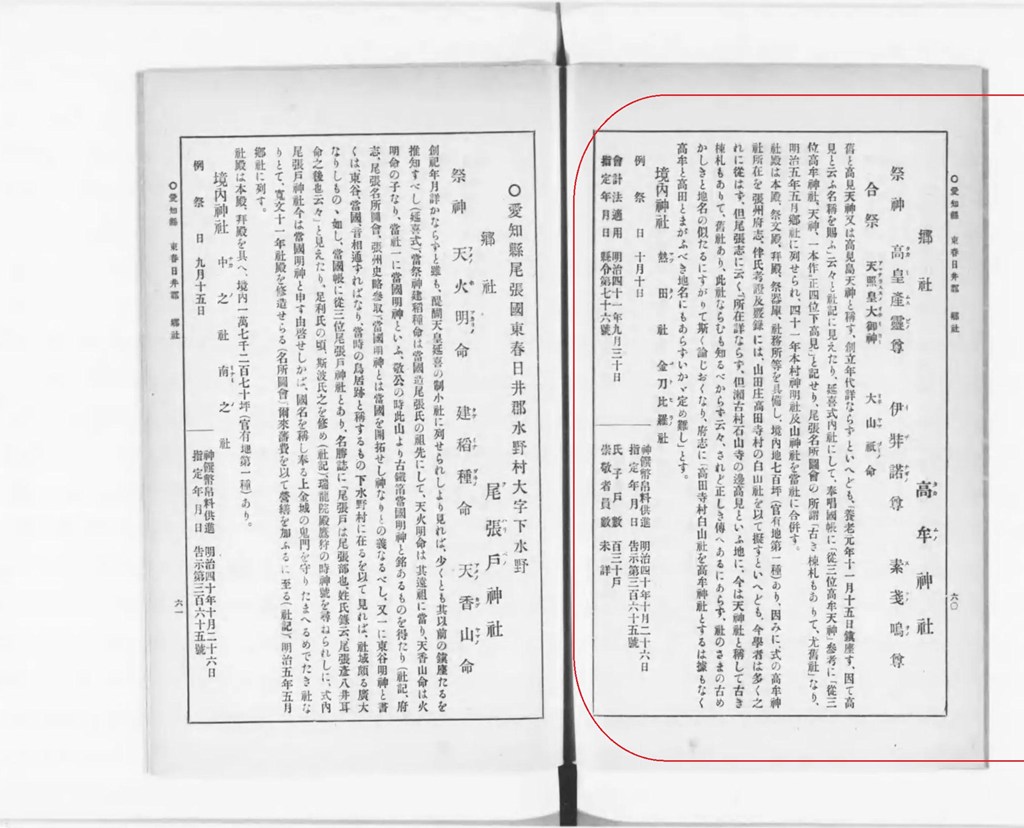 ○愛知縣 東春日井郡 鄕社
六〇
鄕社
高牟神社
祭神 高皇產靈尊 伊弉諾尊 素戔嗚尊
合祭 天照皇大御神 大山祇命
舊と高見天神又は高見島天神と稱す、創立年代詳ならずといへども、養老元年十一月十五日鎭座す、因て高
見と云ふ名稱を賜ふ」云々と社記に見えたり、延喜式內社にして、奉唱國帳に「從三位高牟天神」參考に「從三
位高牟神社、天神、一本作正四位下高見」と記せり、尾張名所圖會の所謂「古き棟札もありて、尤舊社」なり、
明治五年五月鄕社に列せられ、四十一年本村神明社及山神社を當社に合併す。
社殿は本殿、祭文殿、拜殿、祭器庫、社務所等を具備し、境內地七百坪(官有地第一種)あり、因みに式の高牟神
社所在を張州府志、伴氏考證及覈錄には、山田庄高田寺村の白山社を以て擬すといへども、今學者は多く之
れに從はず、但尾張志に云く「所在詳ならず、但瀨古村石山寺の邊高見といふ地に、今は天神社と稱して古き
棟札もありて、舊社あり、此社ならむも知るべからず云々、されど正しき傳へあるにあらず、社のさまの古め
かしきと地名の似たるにすがりて斯く論じおくなり、府志に「高田寺村白山社を高牟神社とするは據もなく
高牟と高田とまがふべき地名にもあらずいかゞ定め難し」とす。
境內神社 熱田社 金刀比羅社
例祭日 十月十日
會計法適用 明治四十一年九月三十日
指定年月日 縣令第七十六號
神饌幣帛料供進 明治四十年十月二十六日
指定年月日 告示第三百六十五號
氏子戶數 百三十戶
崇敬者員數 未詳
○愛知縣尾張國東春日井郡水野村大字下水野
鄕社
尾張戶神社
祭神 天火明命 建稻種命 天香山命
創祀年月詳かならずと雖も、醍醐天皇延喜の制小社に列せられしより見れば、少くとも其以前の鎭座たるを
推知すべし(延喜式)當祭神建稻種命は當國造尾張氏の祖先にして、天火明命は其遠祖に當り、天香山命は火
明命の子なり、當社一に當國明神といふ、敬公の時此山より古鐵笛當國明神と銘あるものを得たり(社記、府
志、尾張名所圖會、張州史略參取)當國明神とは當國を開拓せし神なりとの義なるべし、又一に東谷明神と書
くは東谷、當國、音相通ずればなり、當時の鳥居跡と稱するもの下水野村に在るを以て見れば、社域頗る廣大
なりしもの、如し、當國帳に從三位尾張戶神社とあり、名勝誌に「尾張戶は尾張部也姓氏錄云、尾張連八井耳
命之後也云々」と見えたり、足利氏の頃、斯波氏之を修め(社記)瑞龍院殿鷹狩の時神號を尋ねられしに、式內
尾張戶神社今は當國明神と申す由啓せしかば、國名を稱し奉る上金城の鬼門を守りたまへるめでたき社な
りとて、寬文十一年社殿を修造せらる(名所圖會)爾來藩費を以て營繕を加ふるに至る(社記)明治五年五月
鄕社に列す。
社殿は本殿、拜殿を具へ、境內一萬七千二百七十坪(官有地第一種)あり。
境內神社 中之社 南之社
例祭日 九月十五日
神饌幣帛料供進 明治四十年十月二十六日
指定年月日 告示第三百六十五號
○愛知縣 東春日井郡 鄕社
六一